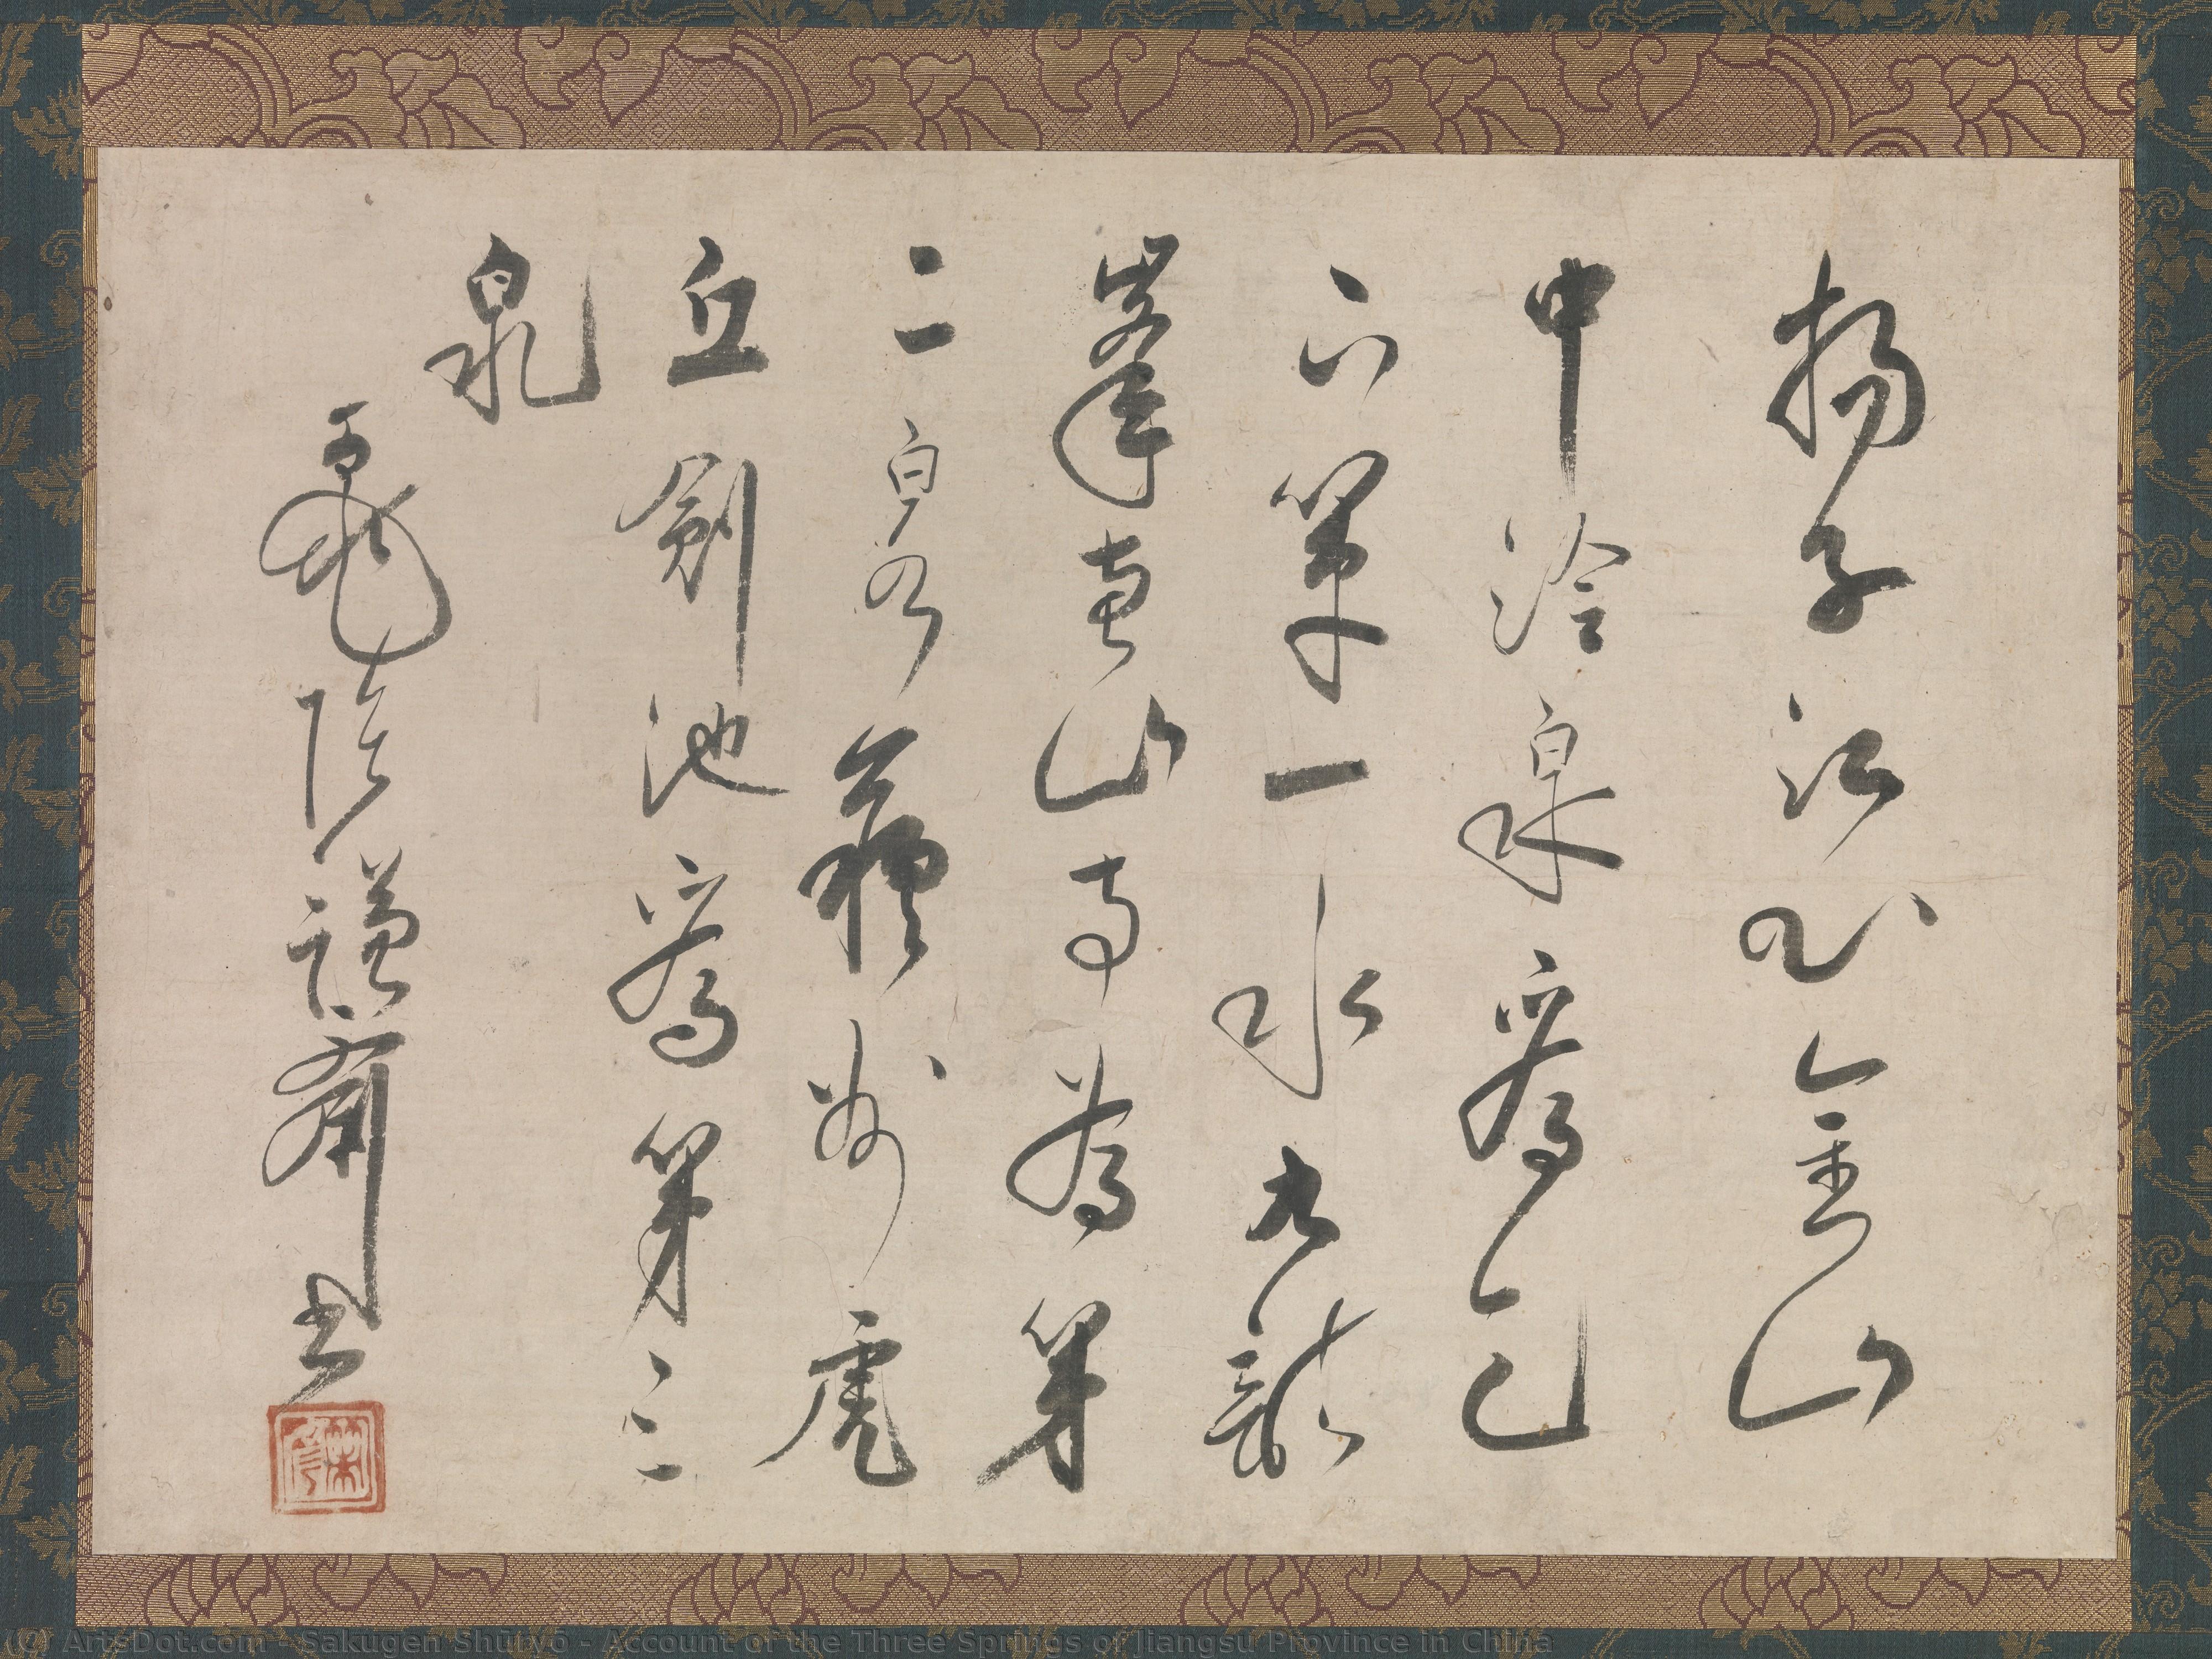 揚子江心金山
中泠泉為
下第一水九龍
峯恵山寺為第
二泉蘇州虎
丘劍池為第三
泉
龜陰謙齋書
(C) ArtsDot.com - Sakugen Shūryō - Account of the Three Springs of Jiangsu Province in China